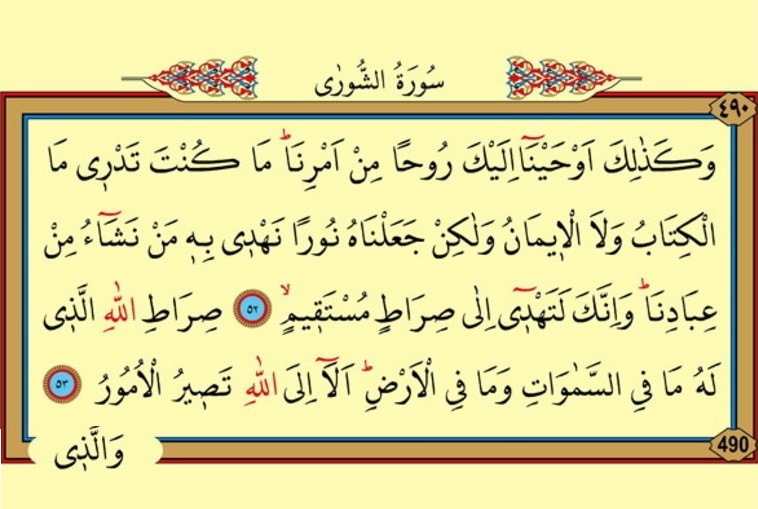 سُورَةُ الشُّورٰى
٤٩٠
وَكَذٰلِكَ اَوْحَيْنَٓا اِلَيْكَ رُوحًا مِنْ اَمْرِنَاۜ مَا كُنْتَ تَدْر۪ي مَا
الْكِتَابُ وَلَا الْا۪يمَانُ وَلٰكِنْ جَعَلْنَاهُ نُورًا نَهْد۪ي بِه۪ مَنْ نَشَٓاءُ مِنْ
عِبَادِنَاۜ وَاِنَّكَ لَتَهْد۪ٓي اِلٰى صِرَاطٍ مُسْتَق۪يمٍۙ ٥٢ صِرَاطِ اللّٰهِ الَّذ۪ي
لَهُ مَا فِي السَّمٰوَاتِ وَمَا فِي الْاَرْضِۜ اَلَٓا اِلَى اللّٰهِ تَص۪يرُ الْاُمُورُ ٥٣
490
وَالَّذ۪ي